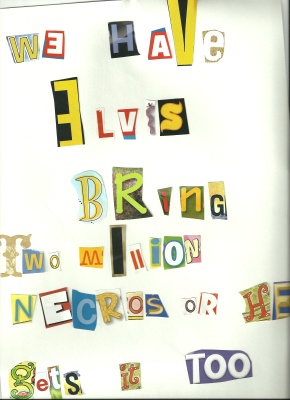 WE HAVe
ELViS
BRiNG
Two MiLLiON
NECROS OR HE
gets it TOO